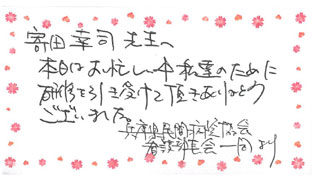 寄田幸司先生へ
本日はお忙しい中私達のために
研修を引き受けて頂きありがとう
ございました。
兵庫県民間病院協会
看護部長会一同より